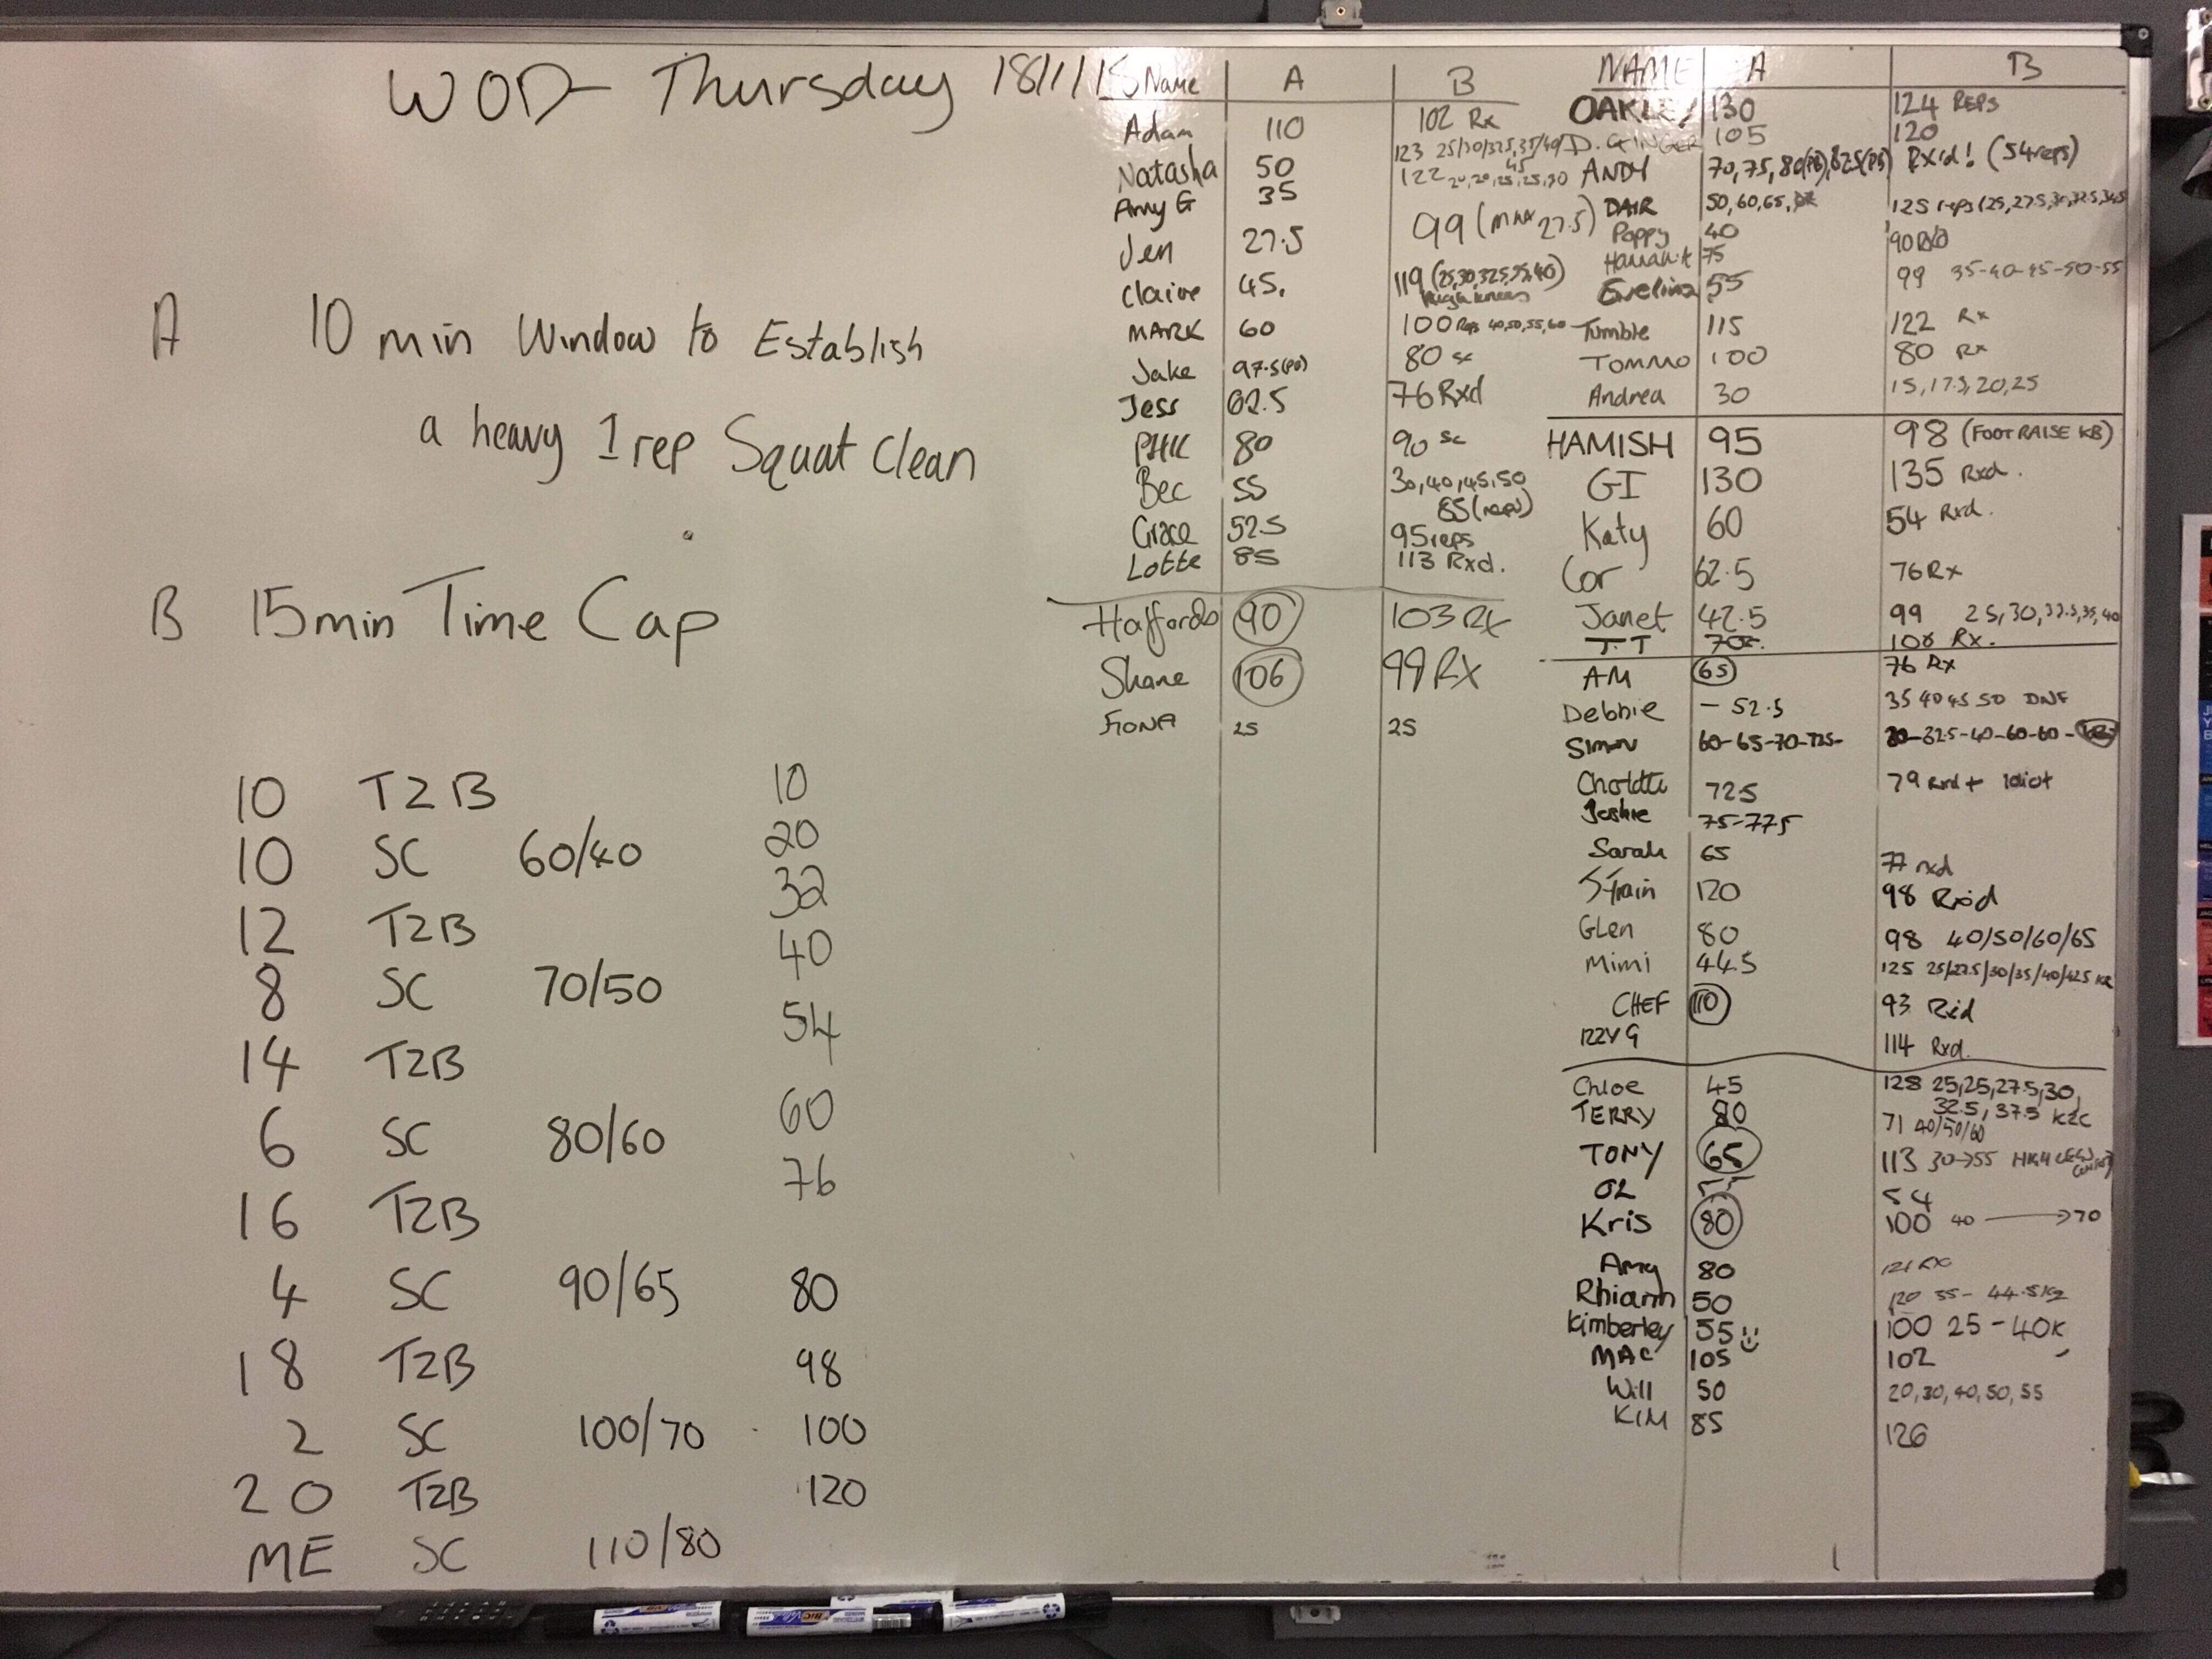 WOD - Thursday 18/1/18
A 10 min Window to Establish
a heavy 1 rep Squat Clean
B 15min Time Cap
10 T2B 10
10 SC 60/40 20
12 T2B 32
8 SC 70/50 40
14 T2B 54
6 SC 80/60 60
16 T2B 76
4 SC 90/65 80
18 T2B 98
2 SC 100/70 100
20 T2B 120
ME SC 110/80
Name A B
Adam 110 102 Rx
Natasha 50 123 25/30/32.5,35/40/45
Amy G 35 122 20,20,25,25,30
Jen 27.5 99 (MAX 27.5)
Claire 45. 119 (25,30,32.5,35,40)
high knees
MARK 60 100 Reps 40,50,55,60
Jake 97.5(PB) 80 sc
Jess 62.5 76 Rxd
PHK 80 90 sc
Bec 55 30,40,45,50
85 (reps)
Grace 52.5 95 reps
Lotte 85 113 Rxd.
Haffords 90 103 Rx
Shane 106 99 RX
FIONA 25 25
NAME A B
OAKLEY 130 124 REPS
D. GINGER 105 120
ANDY 70, 75, 80(PB), 82.5(PB) Rx'd! (54 reps)
DAIR 50, 60, 65, 125 reps (25, 27.5, 30, 32.5,
Poppy 40 90 RXd
Hannah.K 75
Evelina 55 99 35-40-45-50-55
Tumble 115 122 Rx
TOMMO 100 80 Rx
Andrea 30 15, 17.5, 20, 25
HAMISH 95 98 (FOOT RAISE KB)
GI 130 135 Rxd.
Katy 60 54 Rxd.
Cor 62.5 76 Rx
Janet 42.5 99 25, 30, 32.5, 35, 40
T.T 70 Rx.
AM 65 76 Rx
Debbie - 52.5 35 40 45 50 DNF
Simon 60-65-70-72.5- 32.5-40-60-60-
72.5 79 Rxd + Idiot
75-77.5
Sarah 65 77 rxd
Strain 120 98 Rxid
Glen 80 98 40/50/60/65
Mimi 44.5 125 25/27.5/30/35/40/42.5 KR
CHEF 110 93 Rxd
IZZY G 114 Rxd.
Chloe 45 128 25,25,27.5,30,
32.5, 37.5 K2C
TERRY 80 71 40/50/60
TONY 65 113 30→55 HIGH
OL 54
Kris 80 100 40 → 70
Amy 80 121 RX
Rhiann 50 120 35- 44.5kg
Kimberley 55 100 25-40K
MAC 105 102
Will 50 20, 30, 40, 50, 55
KIM 85 126